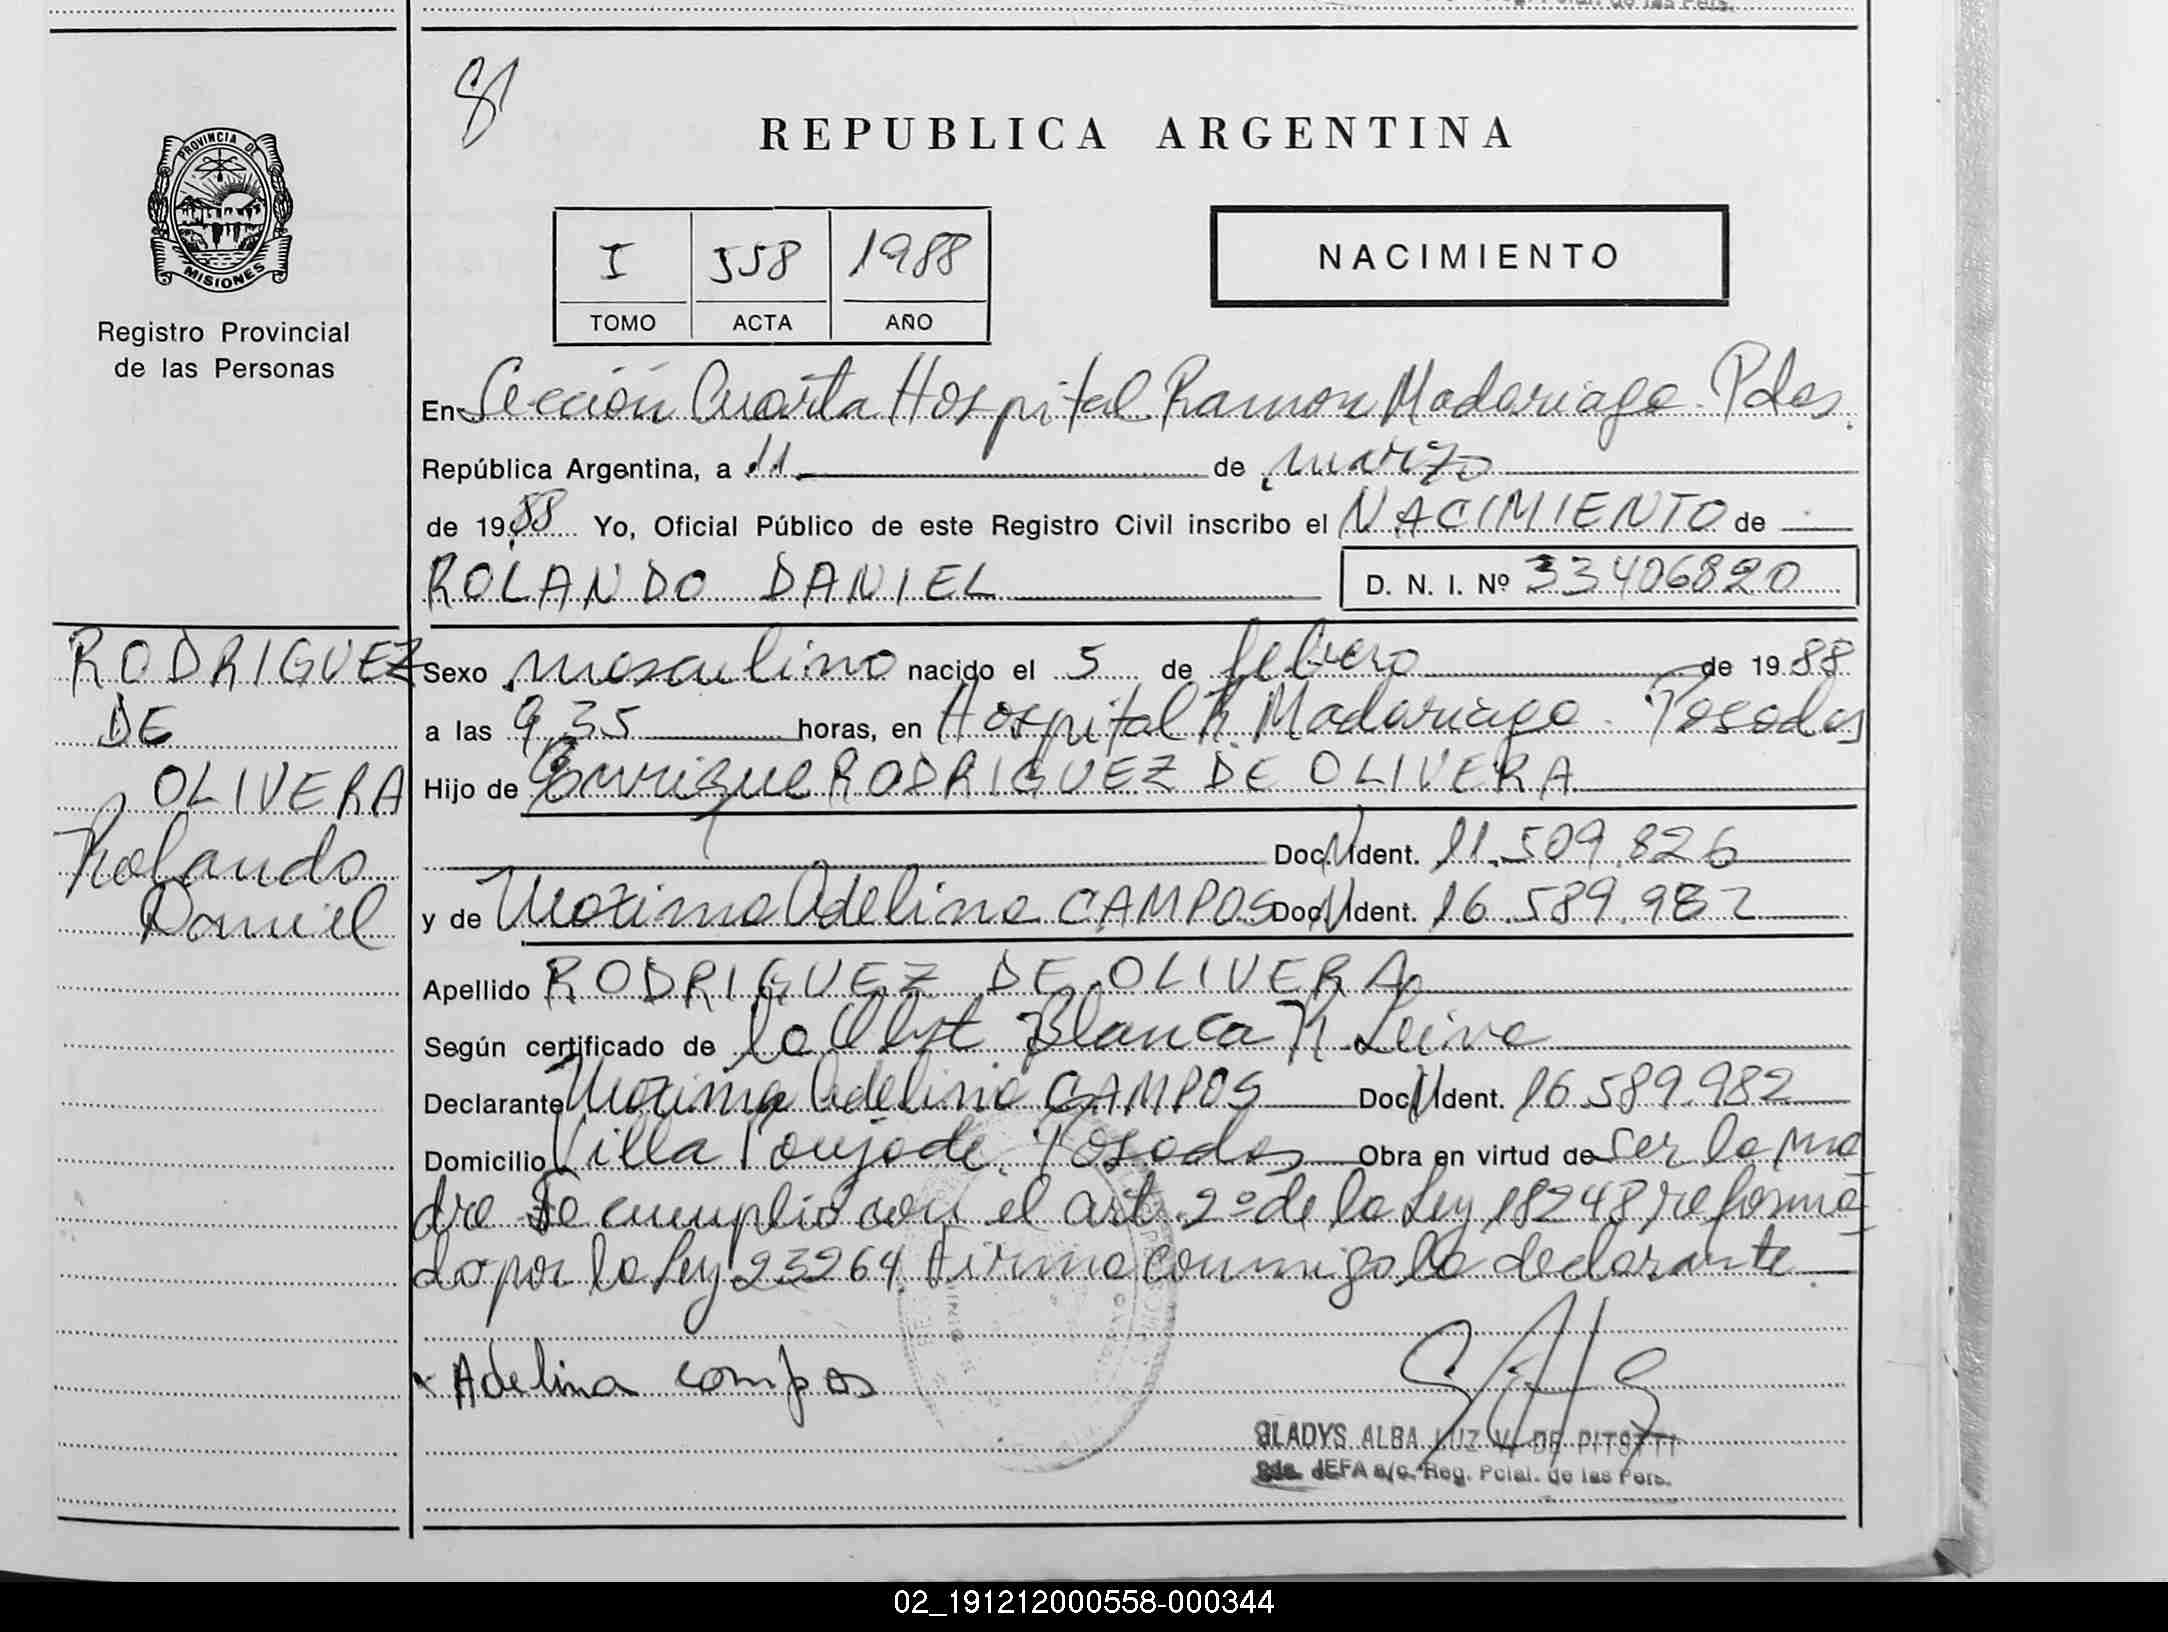 81
REPUBLICA ARGENTINA
PROVINCIA DE
MISIONES
Registro Provincial
de las Personas
I 558 1988
TOMO ACTA AÑO
NACIMIENTO
En Sección Cuarta Hospital Ramon Madariaga. Pdas.
República Argentina, a 11 de marzo
de 1988 Yo, Oficial Público de este Registro Civil inscribo el NACIMIENTO de
ROLANDO DANIEL D. N. I. Nº 33406820
RODRIGUEZ
DE
OLIVERA
Rolando
Daniel
Sexo masculino nacido el 5 de febrero de 1988
a las 9,35 horas, en Hospital R Madariaga. Posadas
Hijo de Enrique RODRIGUEZ DE OLIVERA
Doc. N Ident. 11.509.826
y de Maxima Adelina CAMPOS Doc. N Ident. 16.589.982
Apellido RODRIGUEZ DE OLIVERA
Según certificado de la Obst Blanca R Leiva
Declarante Maxima Adelina CAMPOS Doc N Ident. 16.589.982
Domicilio Villa Poujade. Posadas Obra en virtud de ser la ma
dre Se cumplió con el art. 2º de la Ley 18248 reforma
da por la Ley 23264. Firma conmigo la declarante.
x Adelina campos
GLADYS ALBA LUZ V. DE PITSTTI
JEFA a/c. Reg. Pcial. de las Pers.
02_191212000558-000344